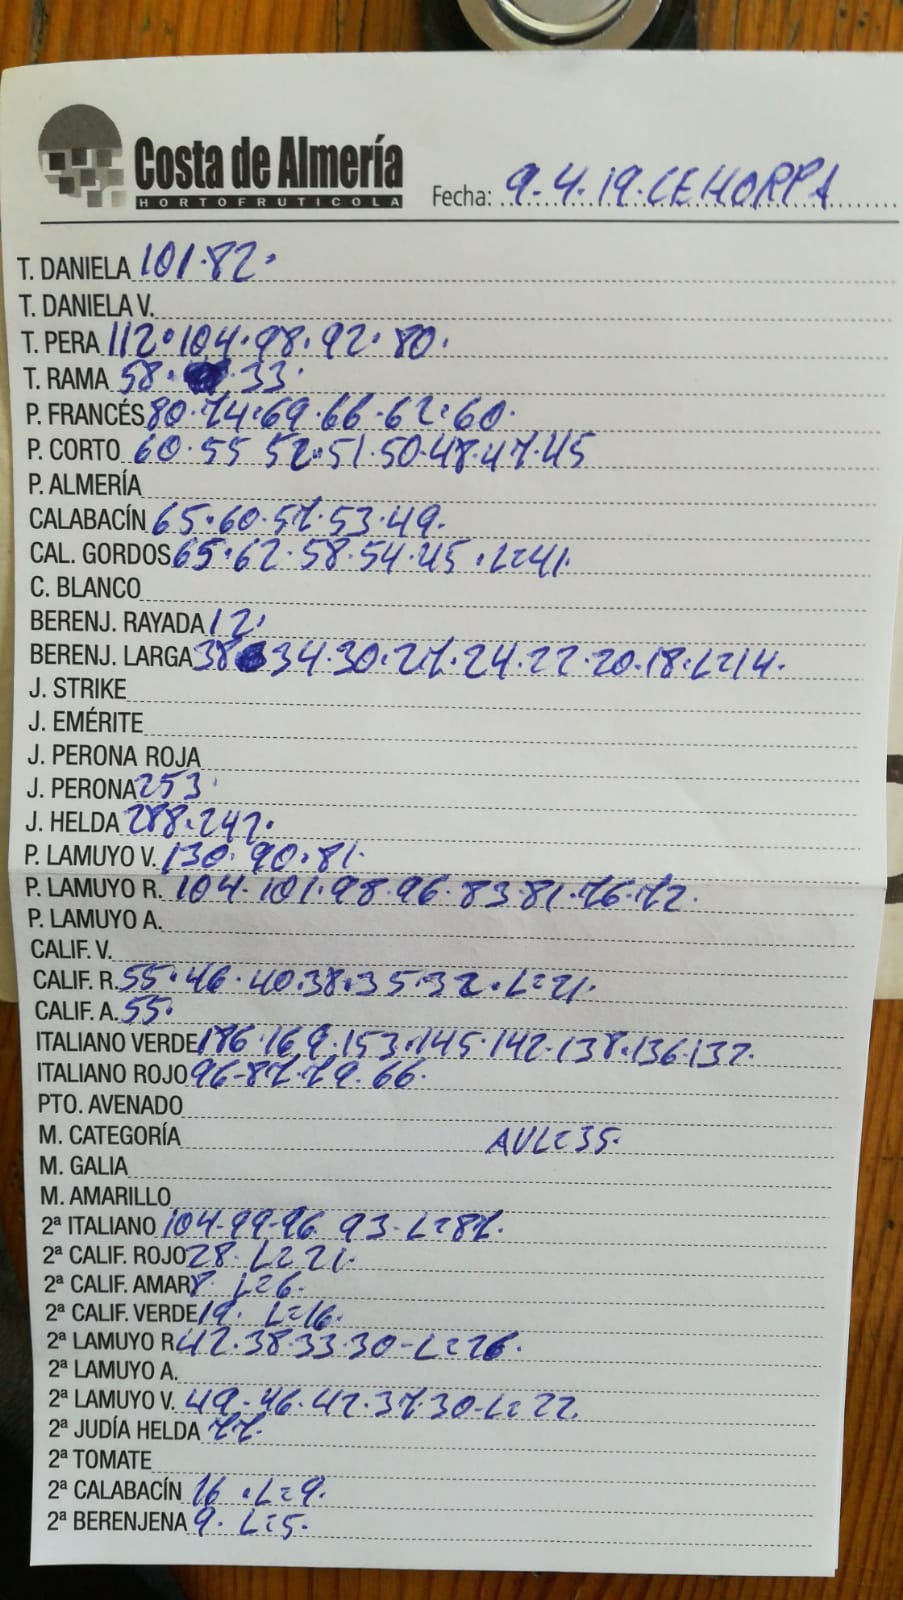 Costa de Almería
HORTOFRUTICOLA
Fecha: 9-4-19.CEHORPA
T. DANIELA 101.82.
T. DANIELA V.
T. PERA 112.104.98.92.80.
T. RAMA 58. 33.
P. FRANCÉS 80.74.69.66.62.60.
P. CORTO 60.55 52.51.50.48.47.45
P. ALMERÍA
CALABACÍN 65.60.57.53.49.
CAL. GORDOS 65.62.58.54.45.L=41.
C. BLANCO
BERENJ. RAYADA 12.
BERENJ. LARGA 38 34.30.27.24.22.20.18.L=14.
J. STRIKE
J. EMÉRITE
J. PERONA ROJA
J. PERONA 253.
J. HELDA 288.247.
P. LAMUYO V. 130.90.81.
P. LAMUYO R. 104.101.98.96.83.81.76.72.
P. LAMUYO A.
CALIF. V.
CALIF. R. 55.46.40.38.35.32.L=21.
CALIF. A. 55.
ITALIANO VERDE 186.169.153.145.142.138.136.132.
ITALIANO ROJO 96-87.79.66.
PTO. AVENADO
M. CATEGORÍA AVL=35.
M. GALIA
M. AMARILLO
2ª ITALIANO 104-99-96 93-L=87.
2ª CALIF. ROJO 28. L=21.
2ª CALIF. AMAR 8. L=6.
2ª CALIF. VERDE 19. L=16.
2ª LAMUYO R 42.38.33.30-L=26.
2ª LAMUYO A.
2ª LAMUYO V. 49-46.42.37.30-L=22.
2ª JUDÍA HELDA 77.
2ª TOMATE
2ª CALABACÍN 16 .L=9.
2ª BERENJENA 9. L=5.